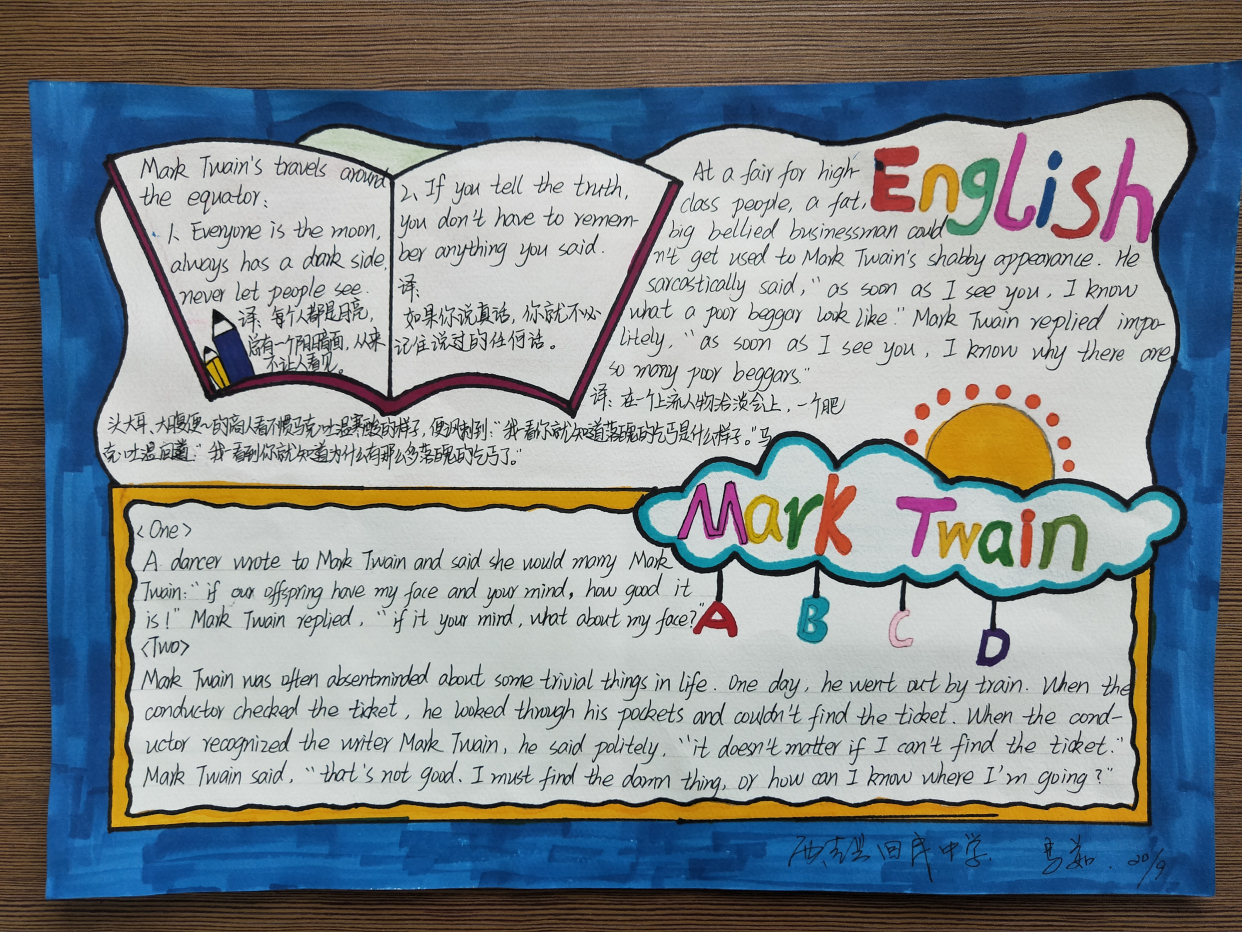 Mark Twain's travels around
the equator:
1. Everyone is the moon,
always has a dark side,
never let people see.
译:每个人都是月亮,
总有一个阴暗面,从来
不让人看见。
2. If you tell the truth,
you don't have to remem-
ber anything you said.
译:
如果你说真话,你就不必
记住说过的任何话。
English
At a fair for high-
class people, a fat,
big bellied businessman could
n't get used to Mark Twain's shabby appearance. He
sarcastically said, "as soon as I see you, I know
what a poor beggar look like." Mark Twain replied impo-
litely, "as soon as I see you, I know why there are
so many poor beggars."
译:在一个上流人物洽谈会上,一个肥
头大耳、大腹便便的商人看不惯马克·吐温寒酸的样子,便讽刺到:"我一看你就知道落魄的乞丐是什么样子。"马
克·吐温回道:"我一看到你就知道为什么有那么多落魄的乞丐了。"
Mark Twain
A B C D
<One>
A dancer wrote to Mark Twain and said she would marry Mark
Twain: "if our offspring have my face and your mind, how good it
is!" Mark Twain replied, "if it your mind, what about my face?"
<Two>
Mark Twain was often absentminded about some trivial things in life. One day, he went out by train. When the
conductor checked the ticket, he looked through his pockets and couldn't find the ticket. When the cond-
uctor recognized the writer Mark Twain, he said politely, "it doesn't matter if I can't find the ticket."
Mark Twain said, "that's not good. I must find the damn thing, or how can I know where I'm going?"
中学 20/9